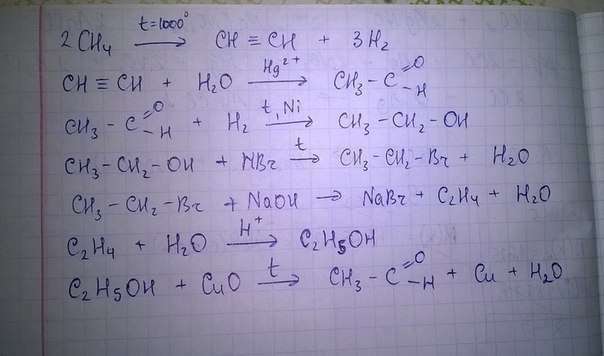 2CH₄ —t=1000°→ CH≡CH + 3H₂
CH≡CH + H₂O —Hg²⁺→ CH₃-C(=O)-H
CH₃-C(=O)-H + H₂ —t, Ni→ CH₃-CH₂-OH
CH₃-CH₂-OH + HBr —t→ CH₃-CH₂-Br + H₂O
CH₃-CH₂-Br + NaOH → NaBr + C₂H₄ + H₂O
C₂H₄ + H₂O —H⁺→ C₂H₅OH
C₂H₅OH + CuO —t→ CH₃-C(=O)-H + Cu + H₂O